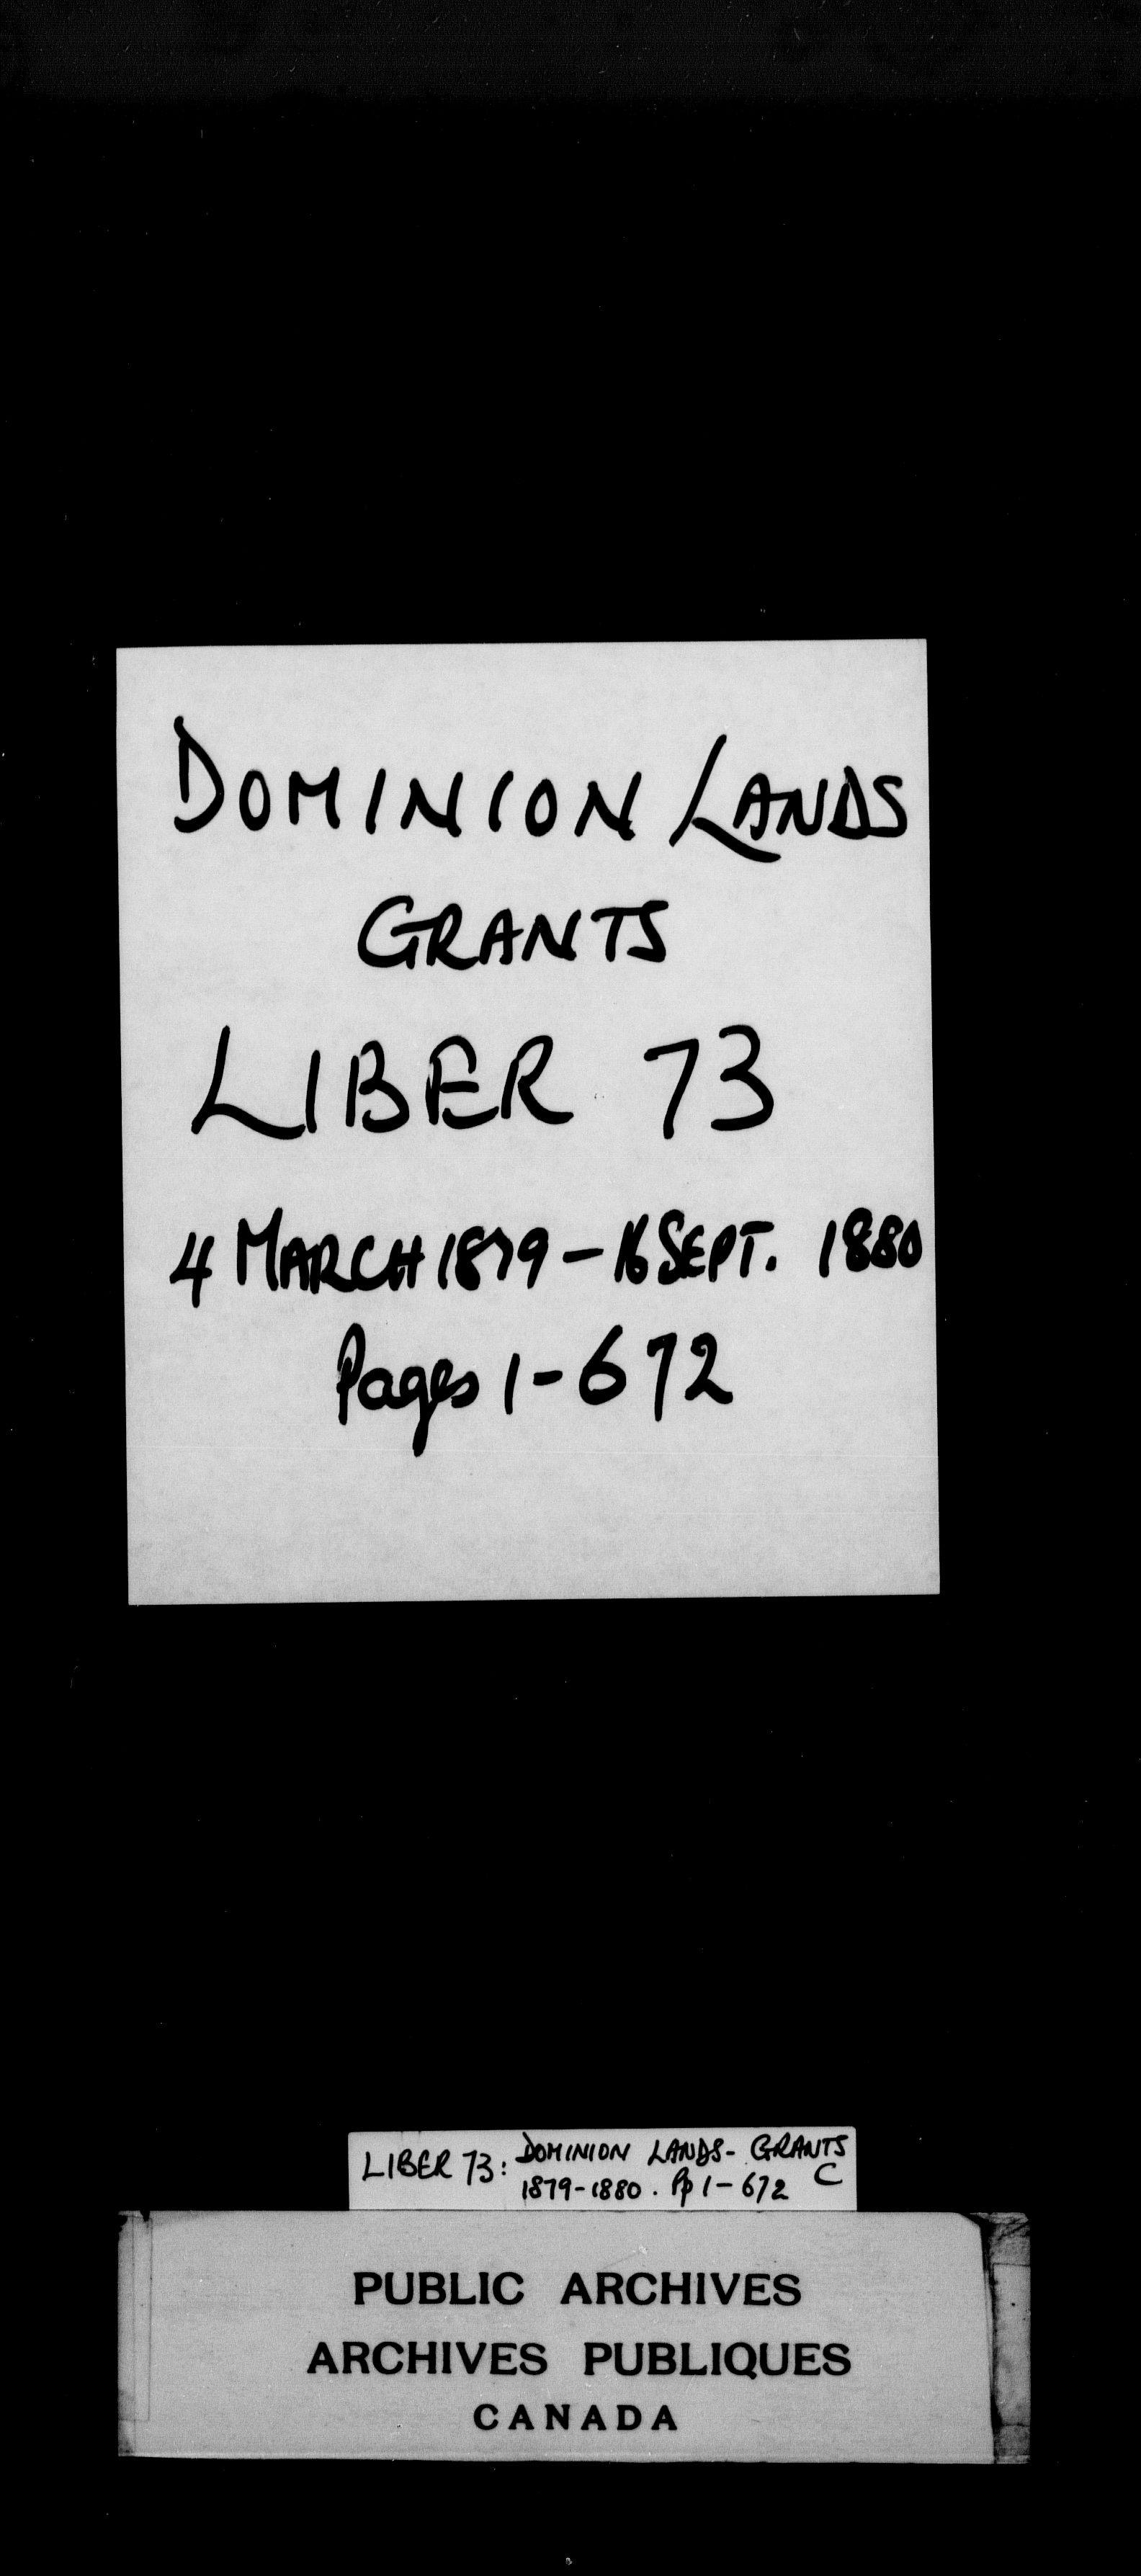 DOMINION LANDS
GRANTS
LIBER 73
4 MARCH 1879 - 16 SEPT. 1880
Pages 1-672
LIBER 73: DOMINION LANDS - GRANTS
1879-1880. Pp 1-672 C
PUBLIC ARCHIVES
ARCHIVES PUBLIQUES
CANADA